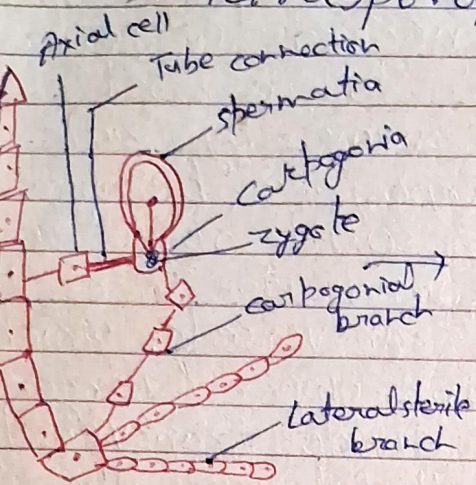 Axial cell
Tube connection
spermatia
Carpogonia
zygote
carpogonial
branch
Lateral sterile
branch